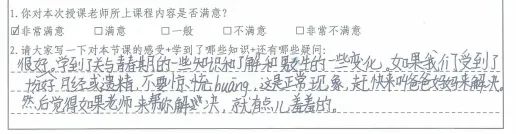 1.你对本次授课老师所上课程内容是否满意?
☑非常满意 □满意 □一般 □不满意 □非常不满意
2.请大家写一下对本节课的感受+学到了哪些知识+还有哪些疑问:
很好。学到了关与青春期的一些知识和了解和发生的一些变化。如果我们受到了
月经或遗精,不要惊慌huāng,这是正常现象,赶快来叫爸爸妈妈来解决。
然后觉得如果老师来帮你解决,就有点儿羞羞的。